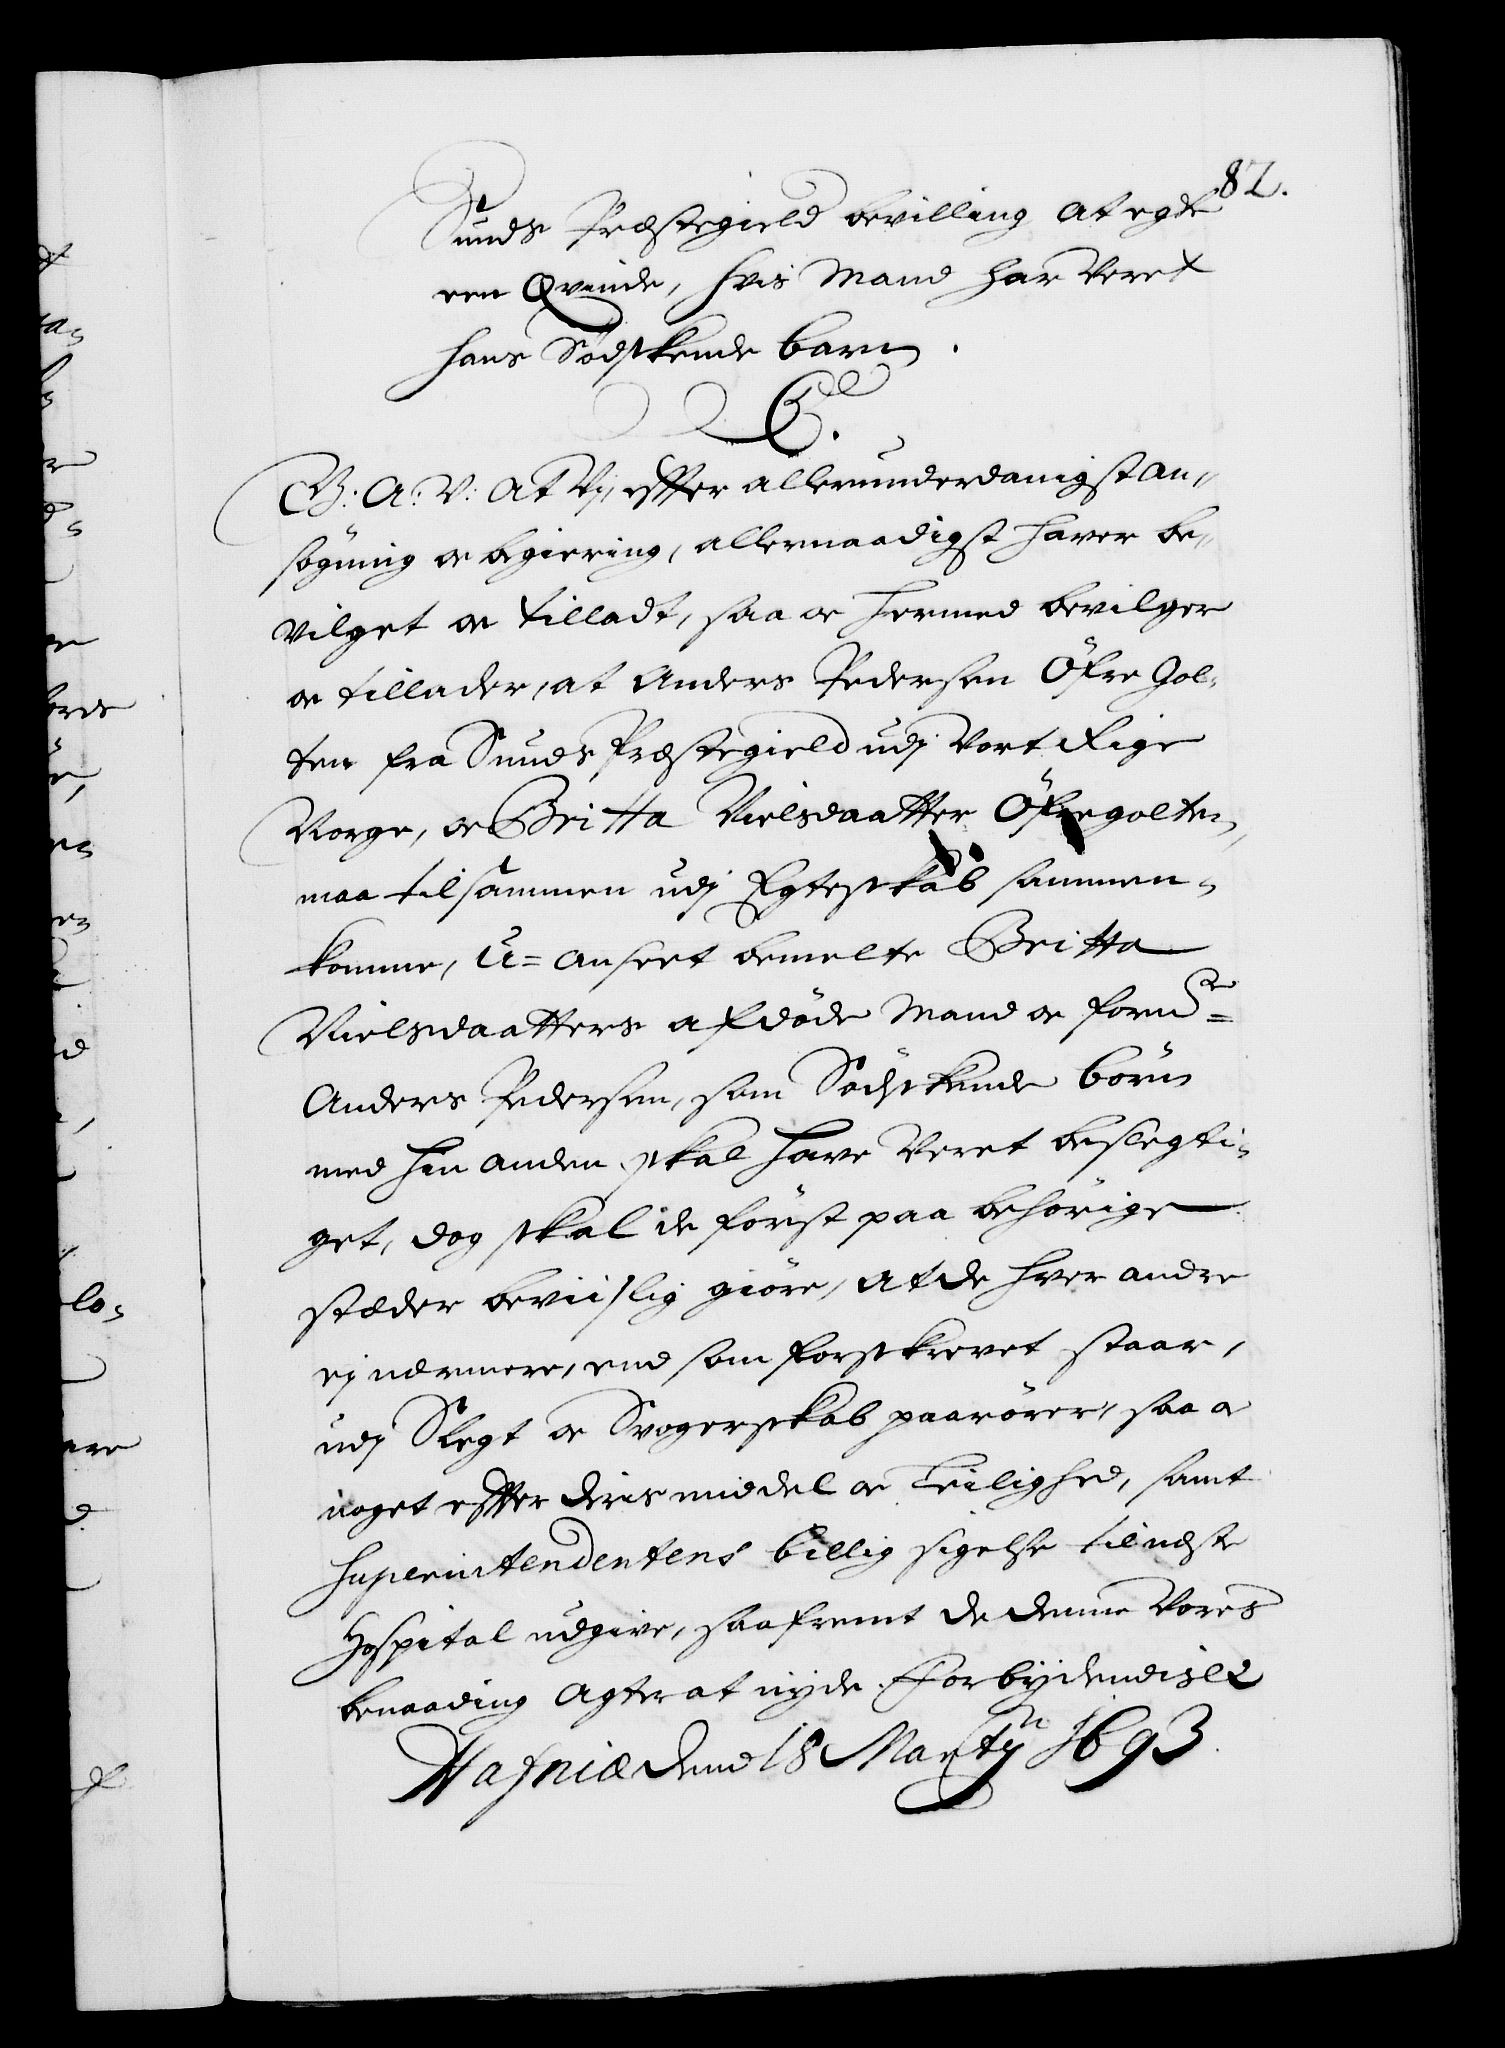 82.
Sunds Præstegield bevilling at egte
een Qvinde, hvis Mand har veret
hans Södskende barn.
C5.
G: A: V: At Vj, effter allerunderdanigst an-
sögning oc begiering, allernaadigst haver be-
vilget oc tilladt, saa oc hermed bevilger
oc tillader, at Anders Pedersen Öfre Gol-
ten fra Sunds Præstegield udj Vort Rige
Norge, oc Britta Nielsdaatter Öfregolten,
maa tilsammen udj Egteskab sammen-
komme, U=anseet bemelte Britta
Nielsdaatters afdöde Mand oc forne=
Anders Pedersen, som Södskende börn
med hin anden skal have veret beslegti-
get, dog skal de först paa behörige
stæder beviislig giöre, at de hver andre
ej nærmere, end som forskrevet staar,
udj Slegt oc Svogerskab paarörer, saa oc
noget effter deris middel oc Leilighed, samt
Superintendentens billig sigelse til næste
Hospital udgive, saafremt de denne Vores
benaading agter at nyde. Forbydendis etc
Hafniæ dend 18 Martij 1693.